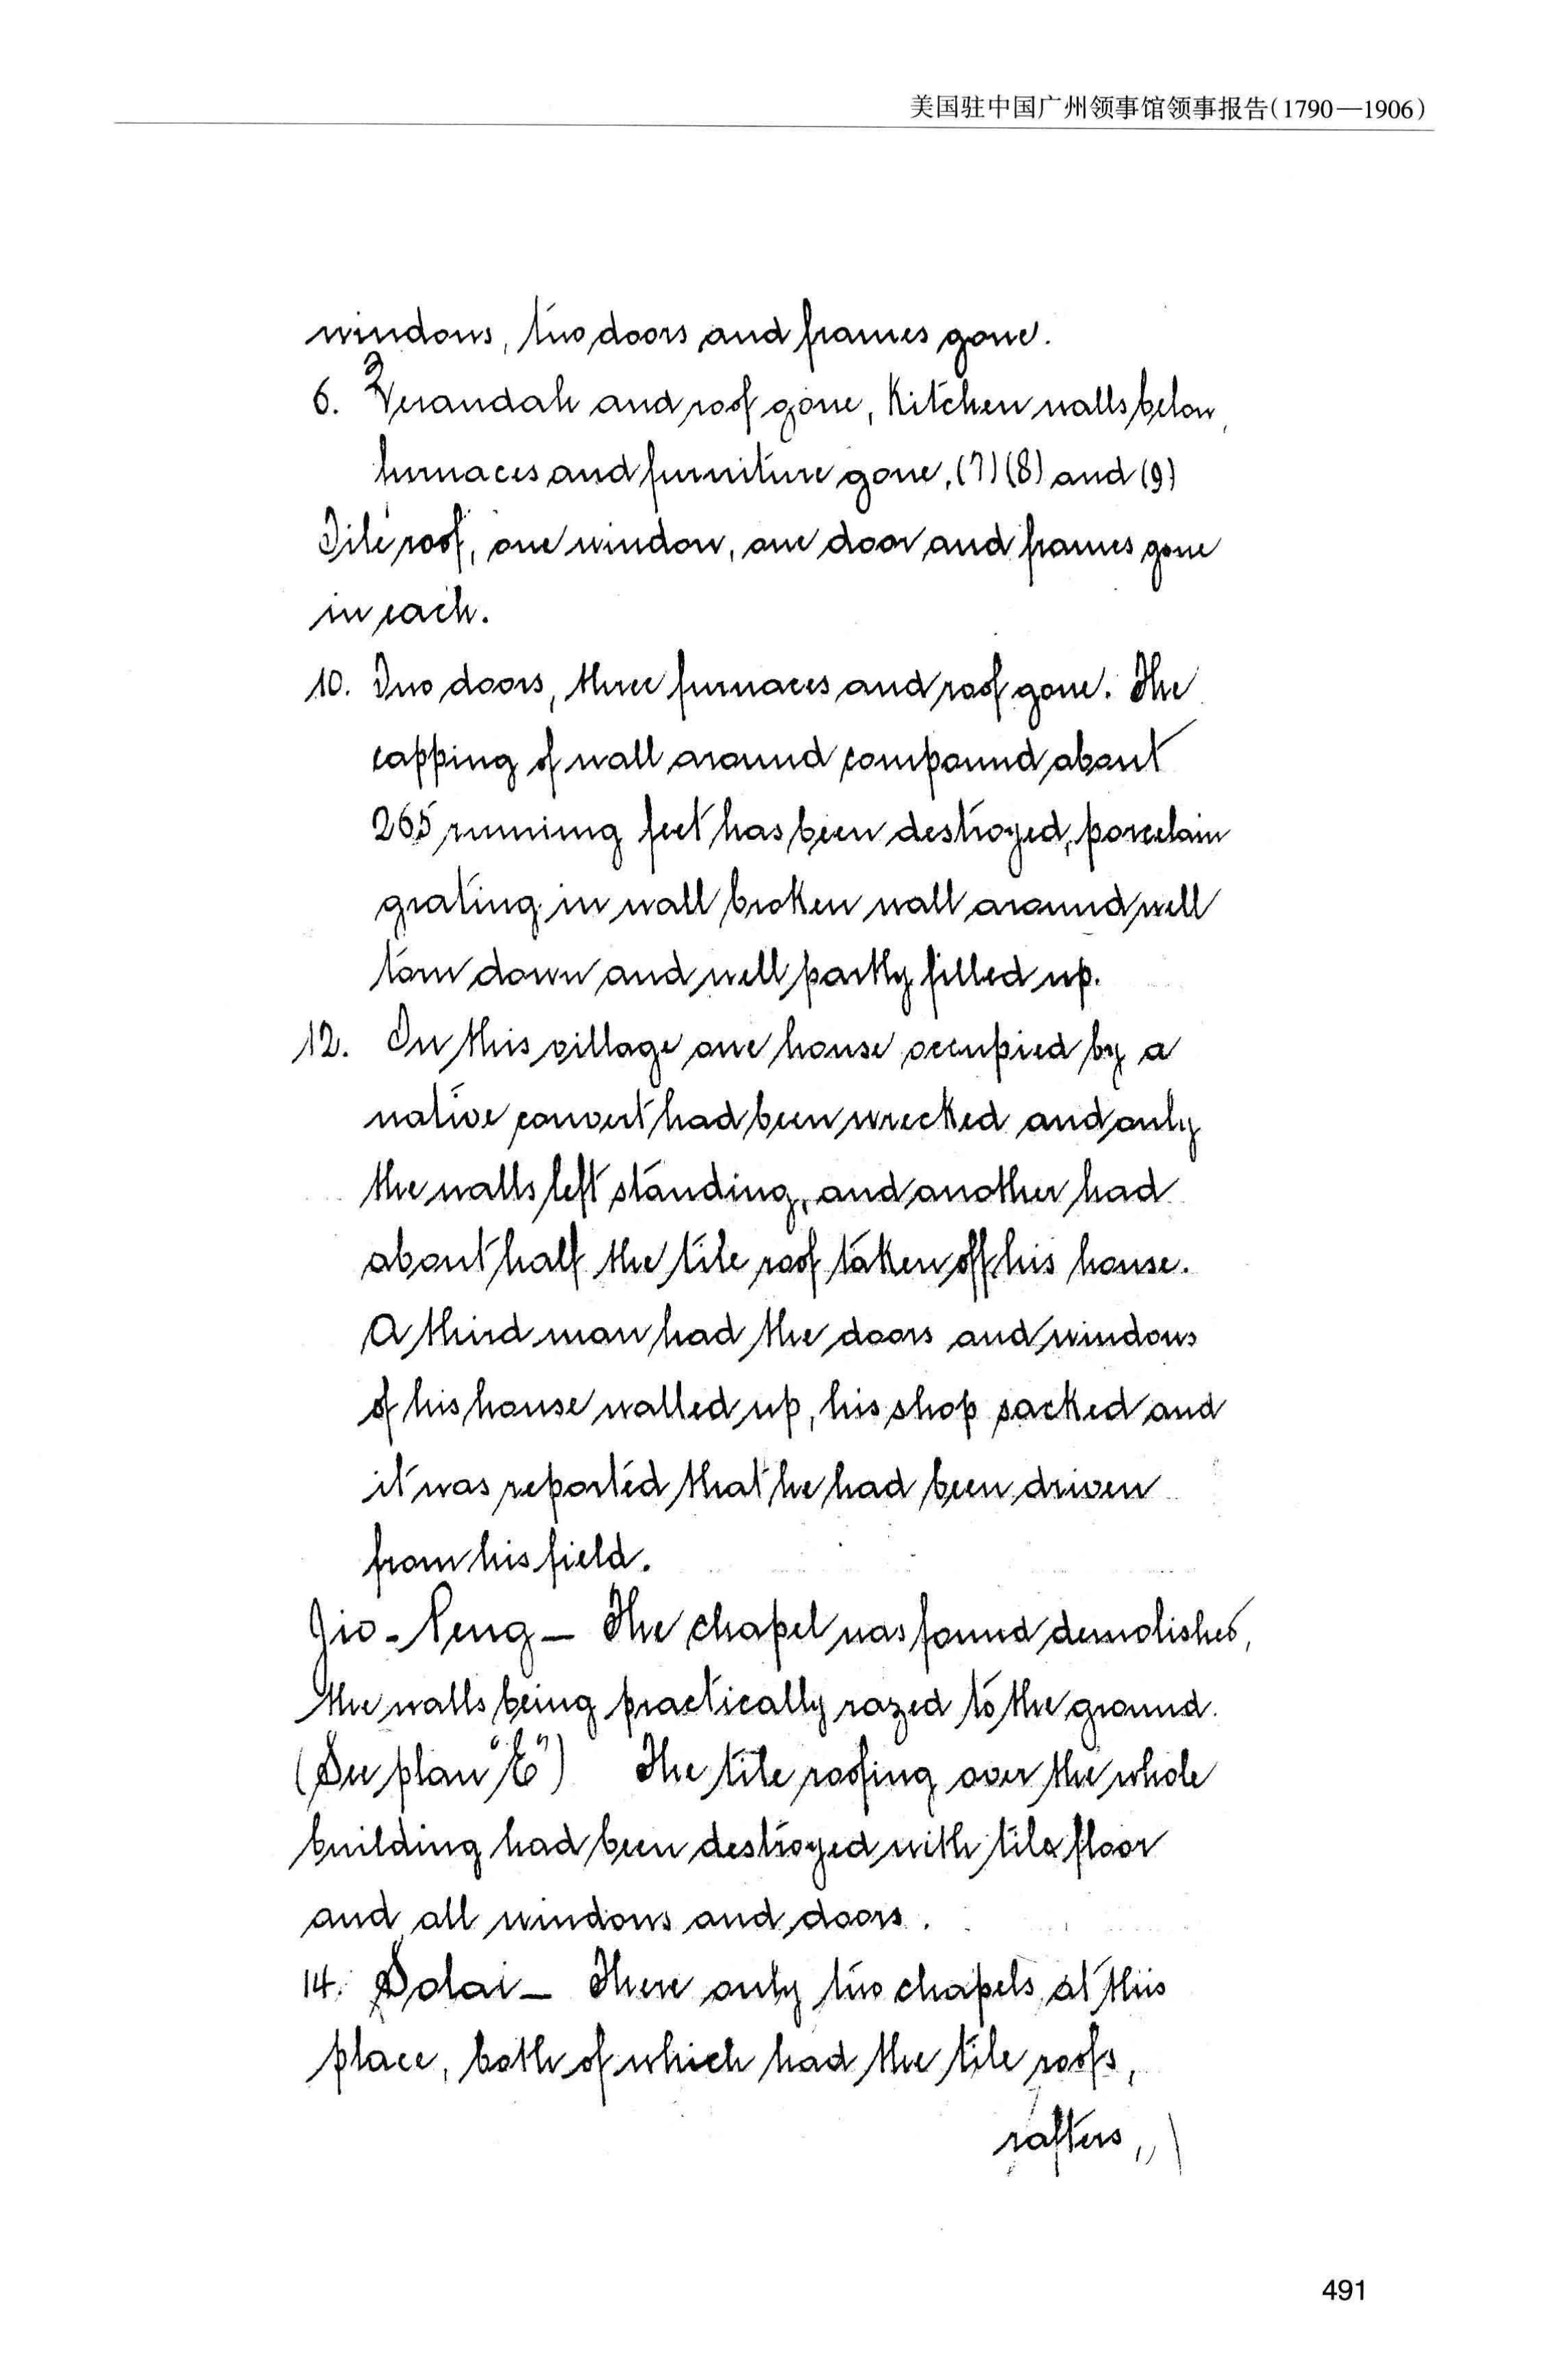 美国驻中国广州领事馆领事报告(1790—1906)
windows, two doors and frames gone.
6. Verandah and roof gone, Kitchen walls below,
furnaces and furniture gone, (7) (8) and (9)
Tile roof, one window, one door and frames gone
in each.
10. Two doors, three furnaces and roof gone. The
capping of wall around compound about
265 running feet has been destroyed, porcelain
grating in wall broken wall around well
torn down and well partly filled up.
12. In this village one house occupied by a
native convert had been wrecked and only
the walls left standing, and another had
about half the tile roof taken off his house.
A third man had the doors and windows
of his house walled up, his shop sacked and
it was reported that he had been driven
from his field.
The chapel was found demolished,
the walls being practically razed to the ground.
(See plan "E") The tile roofing over the whole
building had been destroyed with tile floor
and all windows and doors.
14. Dolai — There only two chapels at this
place, both of which had the tile roofs,
rafters,
491